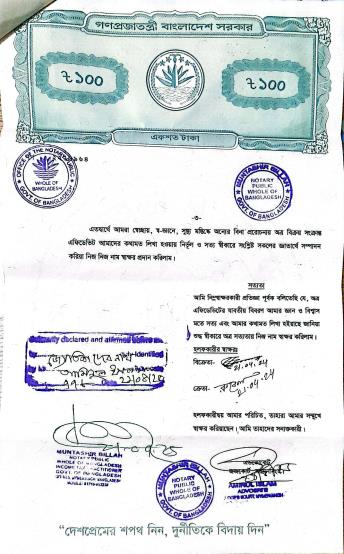 গণপ্রজাতন্ত্রী বাংলাদেশ সরকার
৳১০০
৳১০০
একশত টাকা
OFFICE OF THE NOTARY PUBLIC
WHOLE OF BANGLADESH
GOVT. OF BANGLADESH
MUNTASHIR BILLAH
NOTARY PUBLIC
WHOLE OF BANGLADESH
GOVT. OF BANGLADESH
-৩-
এতদ্বার্থে আমরা স্বেচ্ছায়, স্ব-জ্ঞানে, সুস্থ্য মস্তিষ্কে অন্যের বিনা প্ররোচনায় অত্র বিক্রয় সংক্রান্ত
এফিডেভিট আমাদের কথামত লিখা হওয়ায় নির্ভুল ও সত্য স্বীকারে সংশ্লিষ্ট সকলের জ্ঞাতার্থে সম্পাদন
করিয়া নিজ নিজ নাম স্বাক্ষর প্রদান করিলাম।
সত্যতা
আমি নিম্নস্বাক্ষরকারী প্রতিজ্ঞা পূর্বক বলিতেছি যে, অত্র
এফিডেভিটের যাবতীয় বিবরণ আমার জ্ঞান ও বিশ্বাস
মতে সত্য এবং আমার কথামত লিখা হইয়াছে জানিয়া
শুদ্ধ স্বীকারে অত্র সত্যতায় নিজ নাম স্বাক্ষর করিলাম।
হলফকারীর স্বাক্ষরঃ
বিক্রেতা-
21.04.24
ক্রেতা-
21.04.24
declared and
identified
হলফকারীদ্বয় আমার পরিচিত, তাহারা আমার সম্মুখে
স্বাক্ষর করিয়াছেন। আমি তাহাদের সনাক্তকারী।
MUNTASIR BILLAH
NOTARY PUBLIC
WHOLE OF BANGLADESH
GOVT. OF BANGLADESH
MUNTASHIR BILLAH
NOTARY PUBLIC
WHOLE OF BANGLADESH
GOVT. OF BANGLADESH
এডভোকেট
AMIRUL ISLAM
ADVOCATE
"দেশপ্রেমের শপথ নিন, দুর্নীতিকে বিদায় দিন"